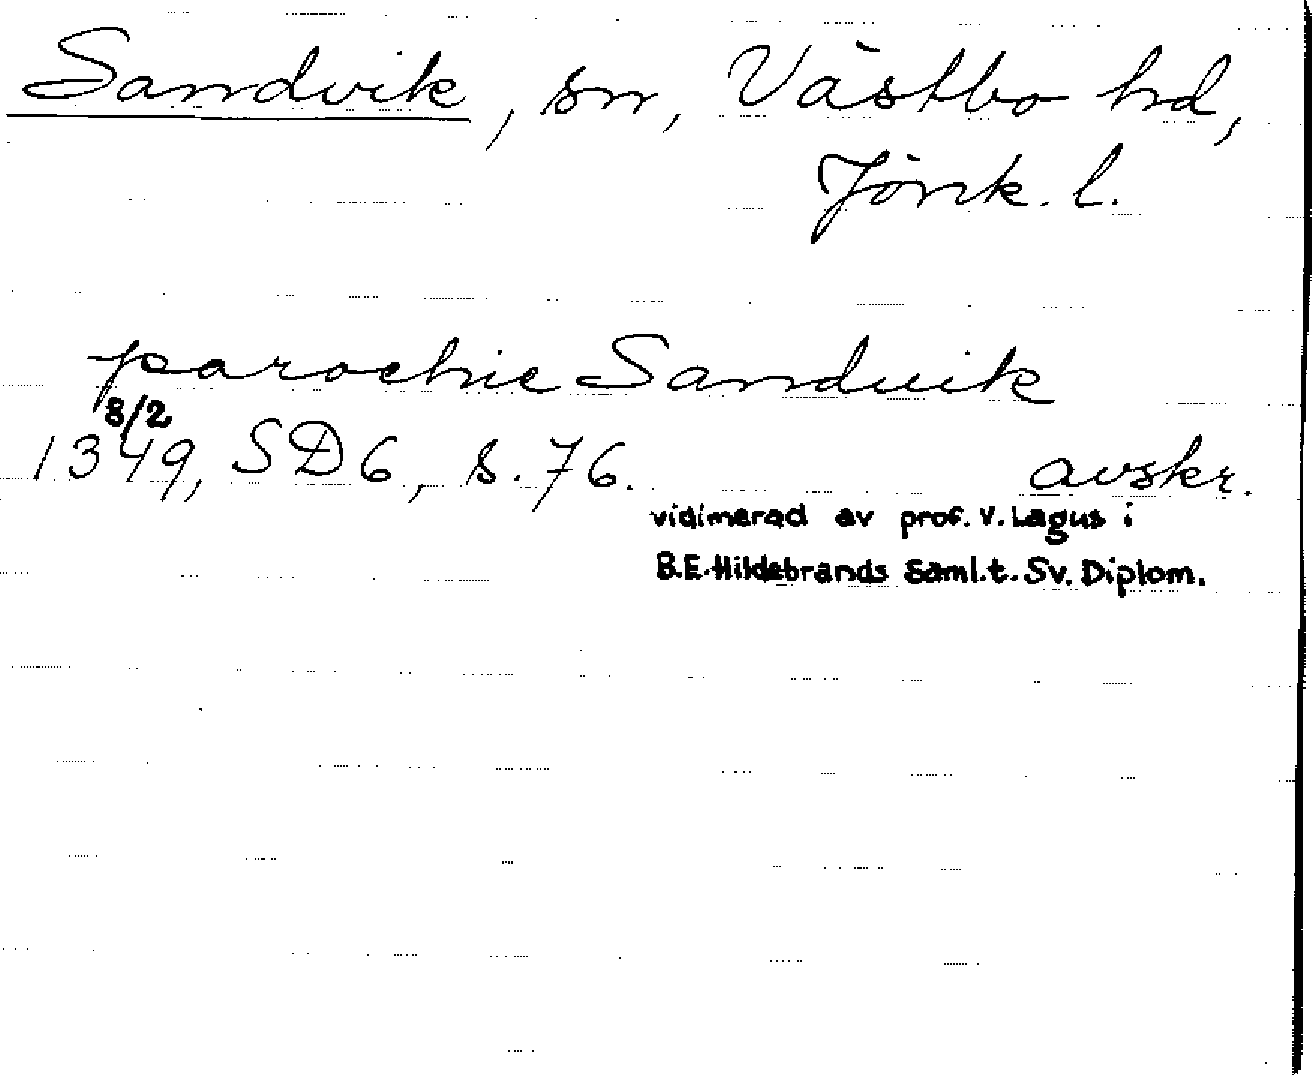 Sandvik, sn, Västbo hd,
Jönk. l.
parochie Sandvik
8/2
1349, SD 6, s. 76. avskr.
vidimerad av prof. V. Lagus i
B.E. Hildebrands Saml. t. Sv. Diplom.